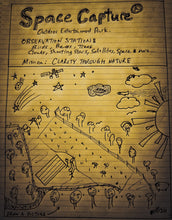 Space Capture©
Outdoor Entertainment Park
OBSERVATION STATIONS
Birds, Planes, Trees
Clouds, Shooting Stars, Satellites, Space & more
Mission: CLARITY THROUGH NATURE